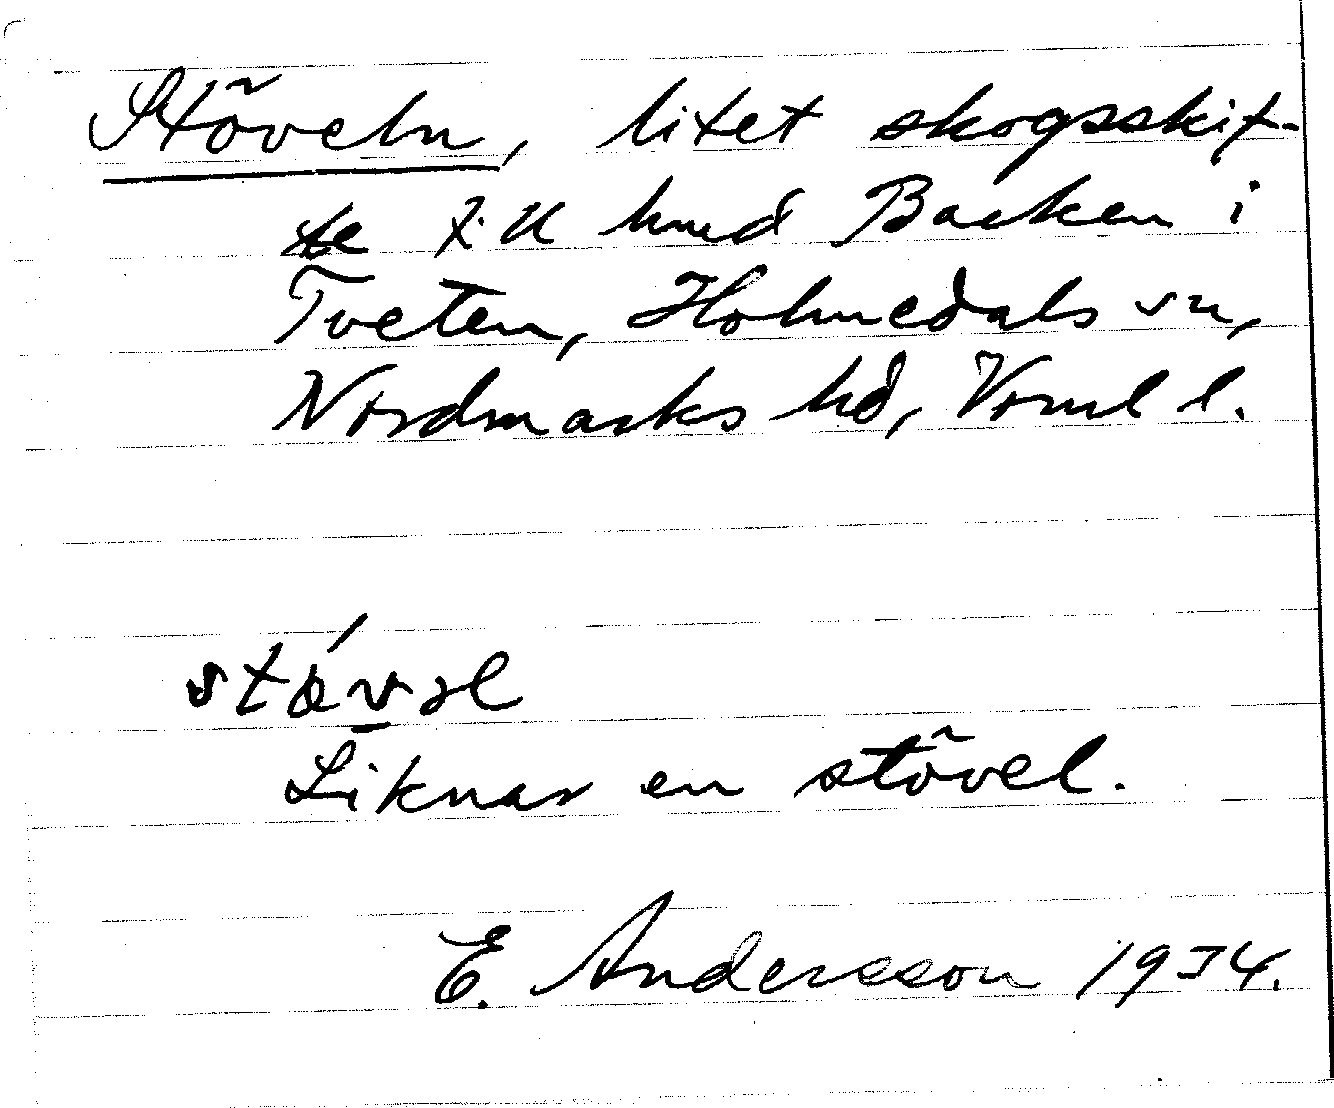 Stöveln, litet skogsskif-
te t. u hmd Backen i
Tveten, Holmedals sn,
Nordmarks hd, Verml l.
stǿvəl
Liknar en stövel.
E. Andersson 1934.